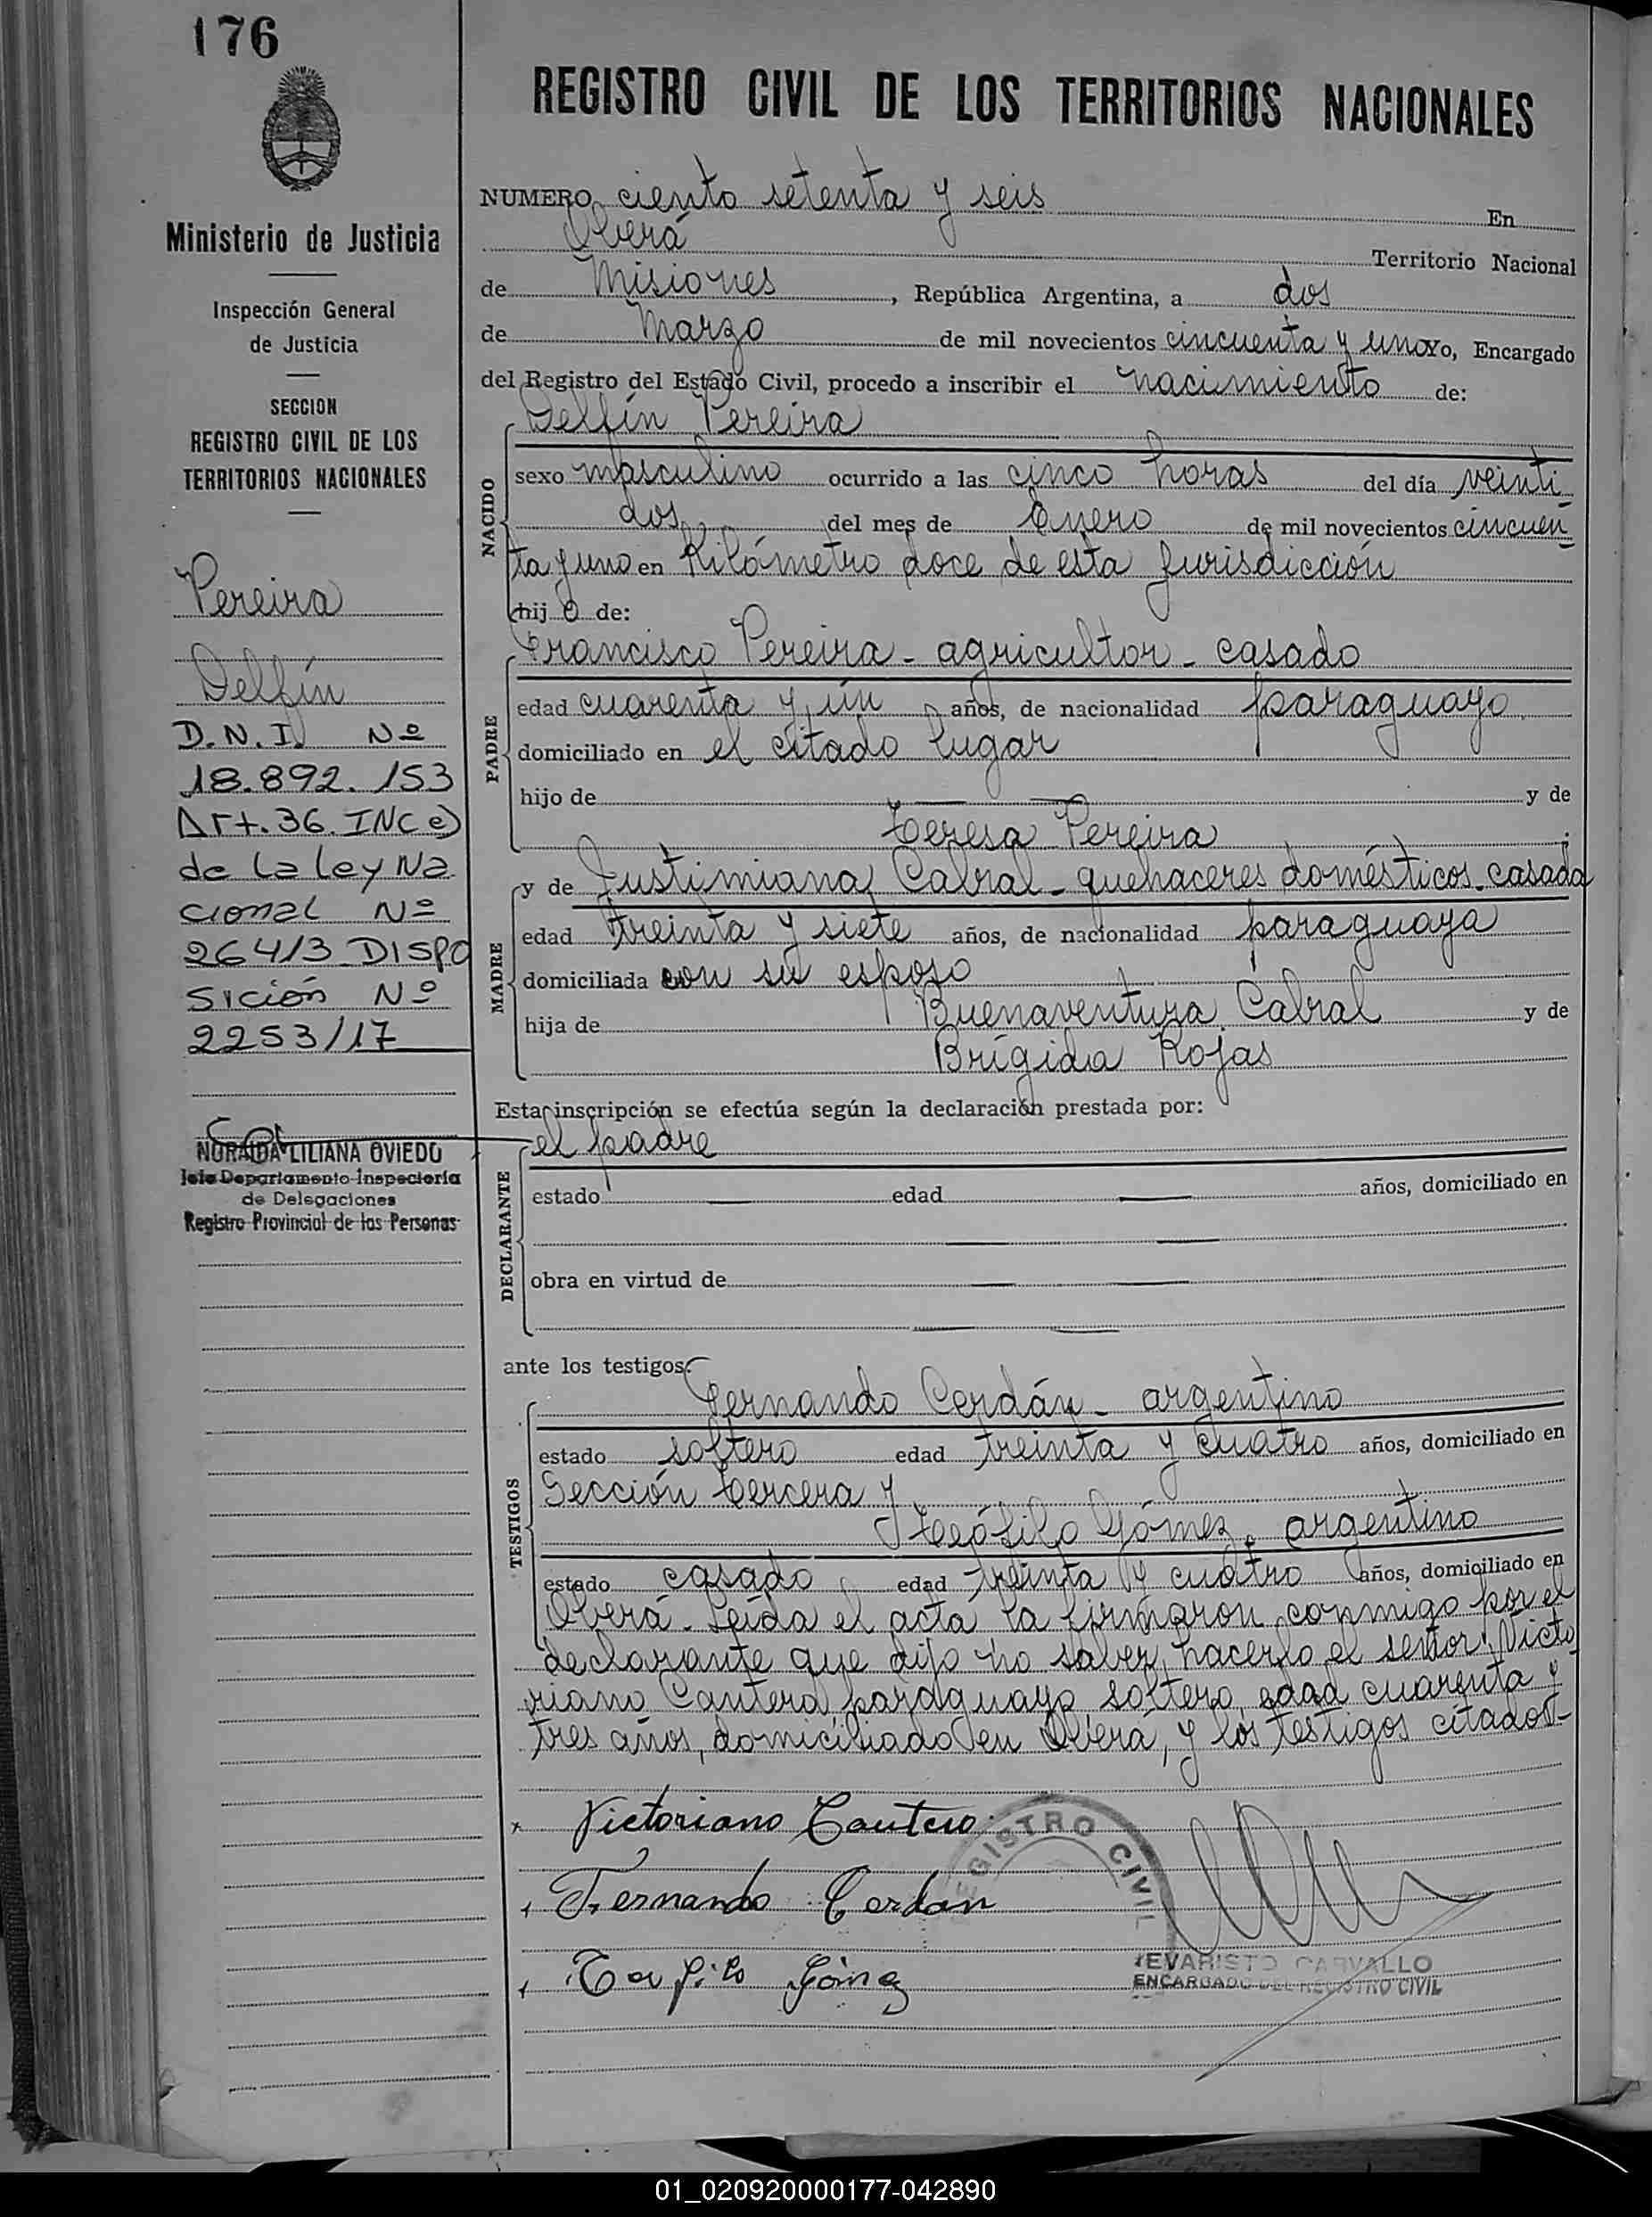 176
Ministerio de Justicia
Inspección General
de Justicia
SECCION
REGISTRO CIVIL DE LOS
TERRITORIOS NACIONALES
Pereira
Delfín
D.N.I. Nº
18.892.153
Art. 36. INC e)
de la ley Na
cional Nº
26413 DISPO
sición Nº
2253/17
NORAIDA LILIANA OVIEDO
Jefe Departamento Inspectoría
de Delegaciones
Registro Provincial de las Personas
REGISTRO CIVIL DE LOS TERRITORIOS NACIONALES
NUMERO ciento setenta y seis En
Oberá Territorio Nacional
de Misiones, República Argentina, a dos
de Marzo de mil novecientos cincuenta y uno Yo, Encargado
del Registro del Estado Civil, procedo a inscribir el nacimiento de:
Delfín Pereira
NACIDO
sexo masculino ocurrido a las cinco horas del día veinti-
dos del mes de Enero de mil novecientos cincuen-
ta y uno en Kilómetro doce de esta jurisdicción
hij o de:
Francisco Pereira - agricultor - casado
PADRE
edad cuarenta y un años, de nacionalidad paraguayo
domiciliado en el citado lugar
hijo de — — y de
Teresa Pereira;
MADRE
y de Justimiana Cabral - quehaceres domésticos - casada
edad treinta y siete años, de nacionalidad paraguaya
domiciliada con su esposo
hija de Buenaventura Cabral y de
Brígida Rojas
Esta inscripción se efectúa según la declaración prestada por:
el padre
DECLARANTE
estado — edad — años, domiciliado en
— —
obra en virtud de — —
— —
ante los testigos:
Fernando Cerdán - argentino
TESTIGOS
estado soltero edad treinta y cuatro años, domiciliado en
Sección tercera y
Teófilo Gómez - argentino
estado casado edad treinta y cuatro años, domiciliado en
Oberá - Leída el acta la firmaron conmigo por el
declarante que dijo no saber hacerlo el señor Victo
riano Cantero paraguayo soltero edad cuarenta y
tres años, domiciliado en Oberá, y los testigos citados-
Victoriano Cantero
Fernando Cerdan
Teofilo Gómez
REGISTRO CIVIL
EVARISTO CARVALLO
ENCARGADO DEL REGISTRO CIVIL
01_020920000177-042890